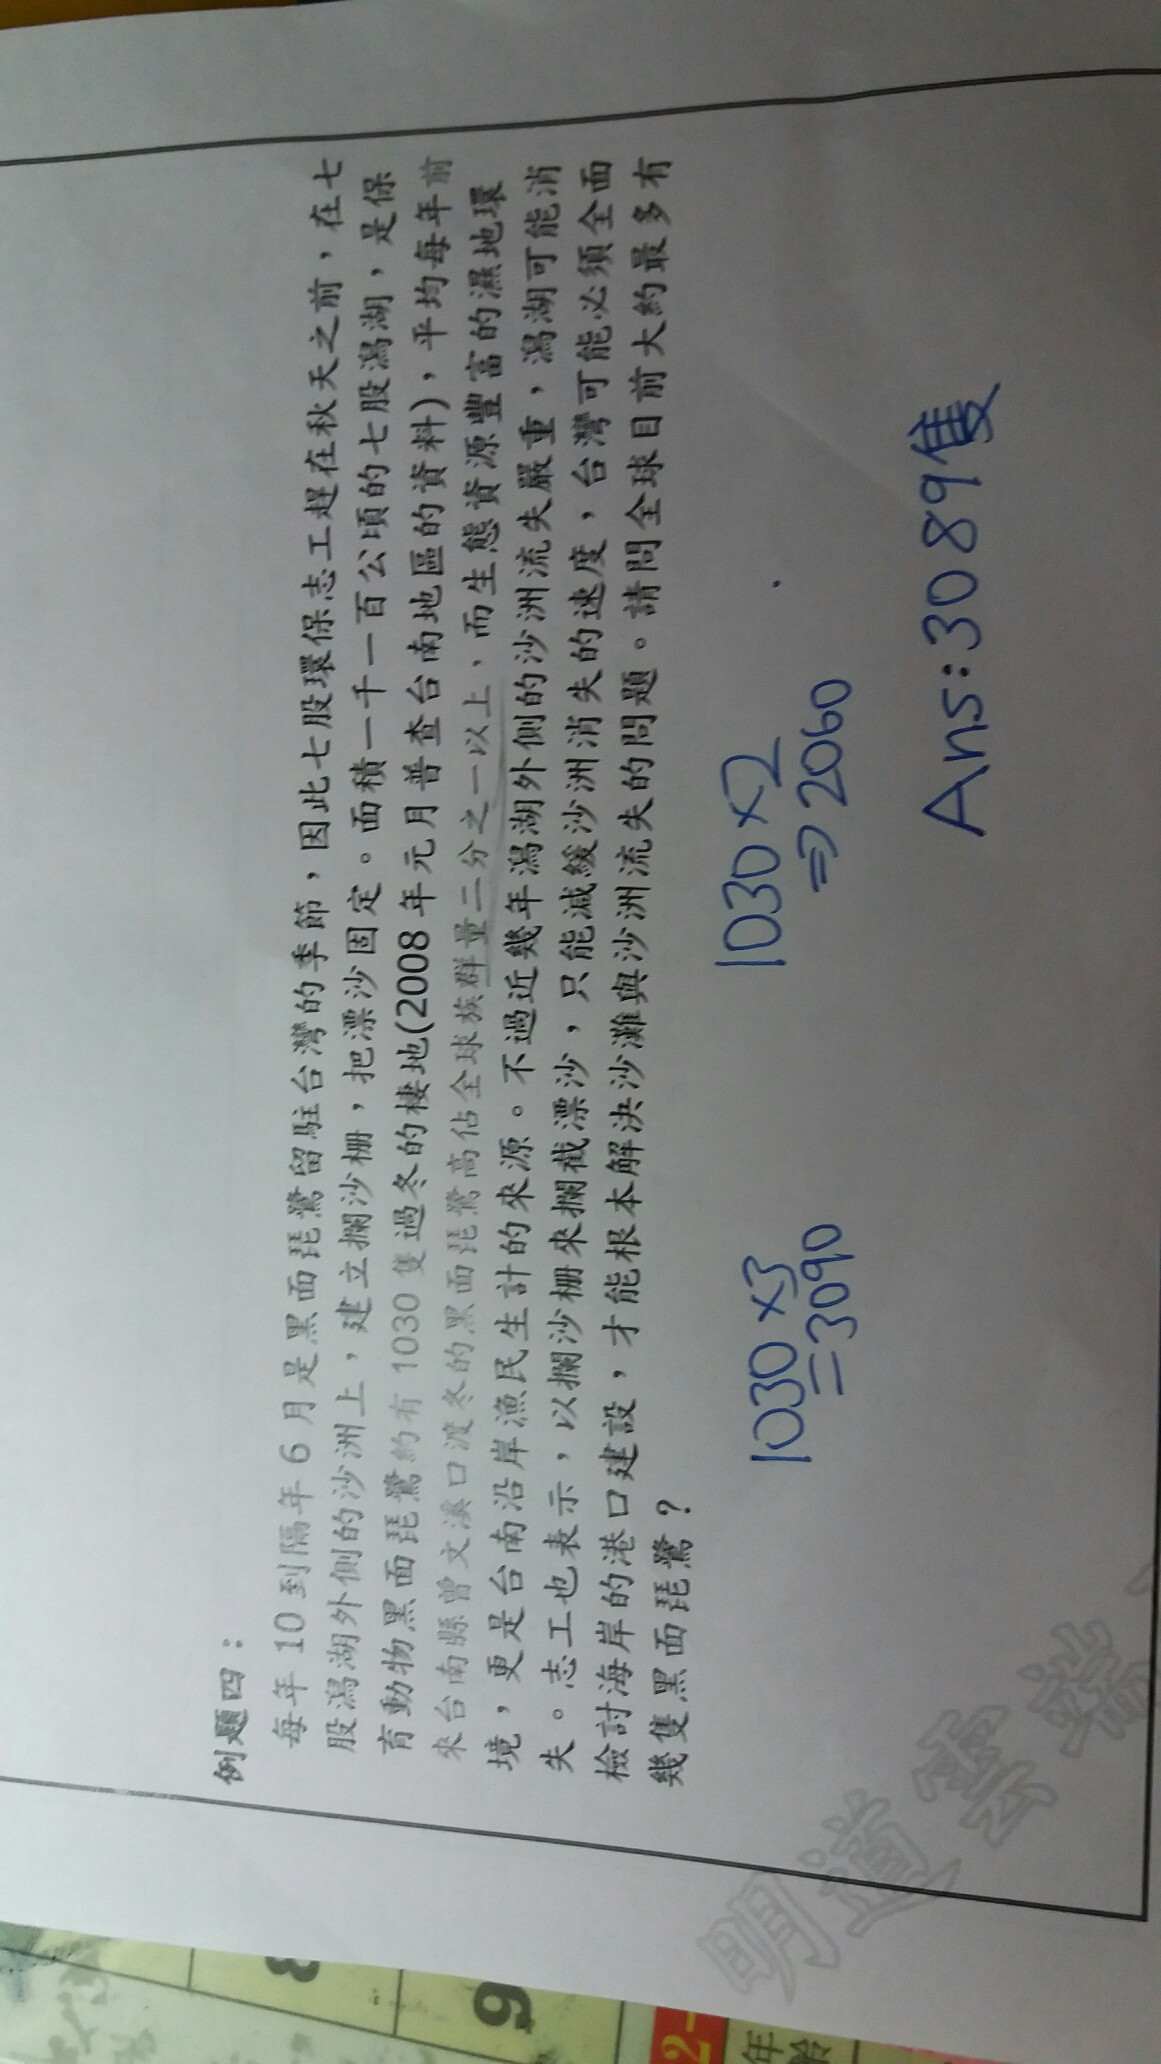 例題四：
每年 10 到隔年 6 月是黑面琵鷺留駐台灣的季節，因此七股環保志工趕在秋天之前，在七
股潟湖外側的沙洲上，建立攔沙柵，把漂沙固定。面積一千一百公頃的七股潟湖，是保
育動物黑面琵鷺約有 1030 隻過冬的棲地(2008 年元月普查台南地區的資料)，平均每年前
來台南縣曾文溪口渡冬的黑面琵鷺高佔全球族群量二分之一以上，而生態資源豐富的濕地環
境，更是台南沿岸漁民生計的來源。不過近幾年潟湖外側的沙洲流失嚴重，潟湖可能消
失。志工也表示，以攔沙柵來攔截漂沙，只能減緩沙洲消失的速度，台灣可能必須全面
檢討海岸的港口建設，才能根本解決沙灘與沙洲流失的問題。請問全球目前大約最多有
幾隻黑面琵鷺？
1030×3
=3090
1030×2
⇒2060
Ans:3089隻
明道雲端
8
9
2-
年
齡